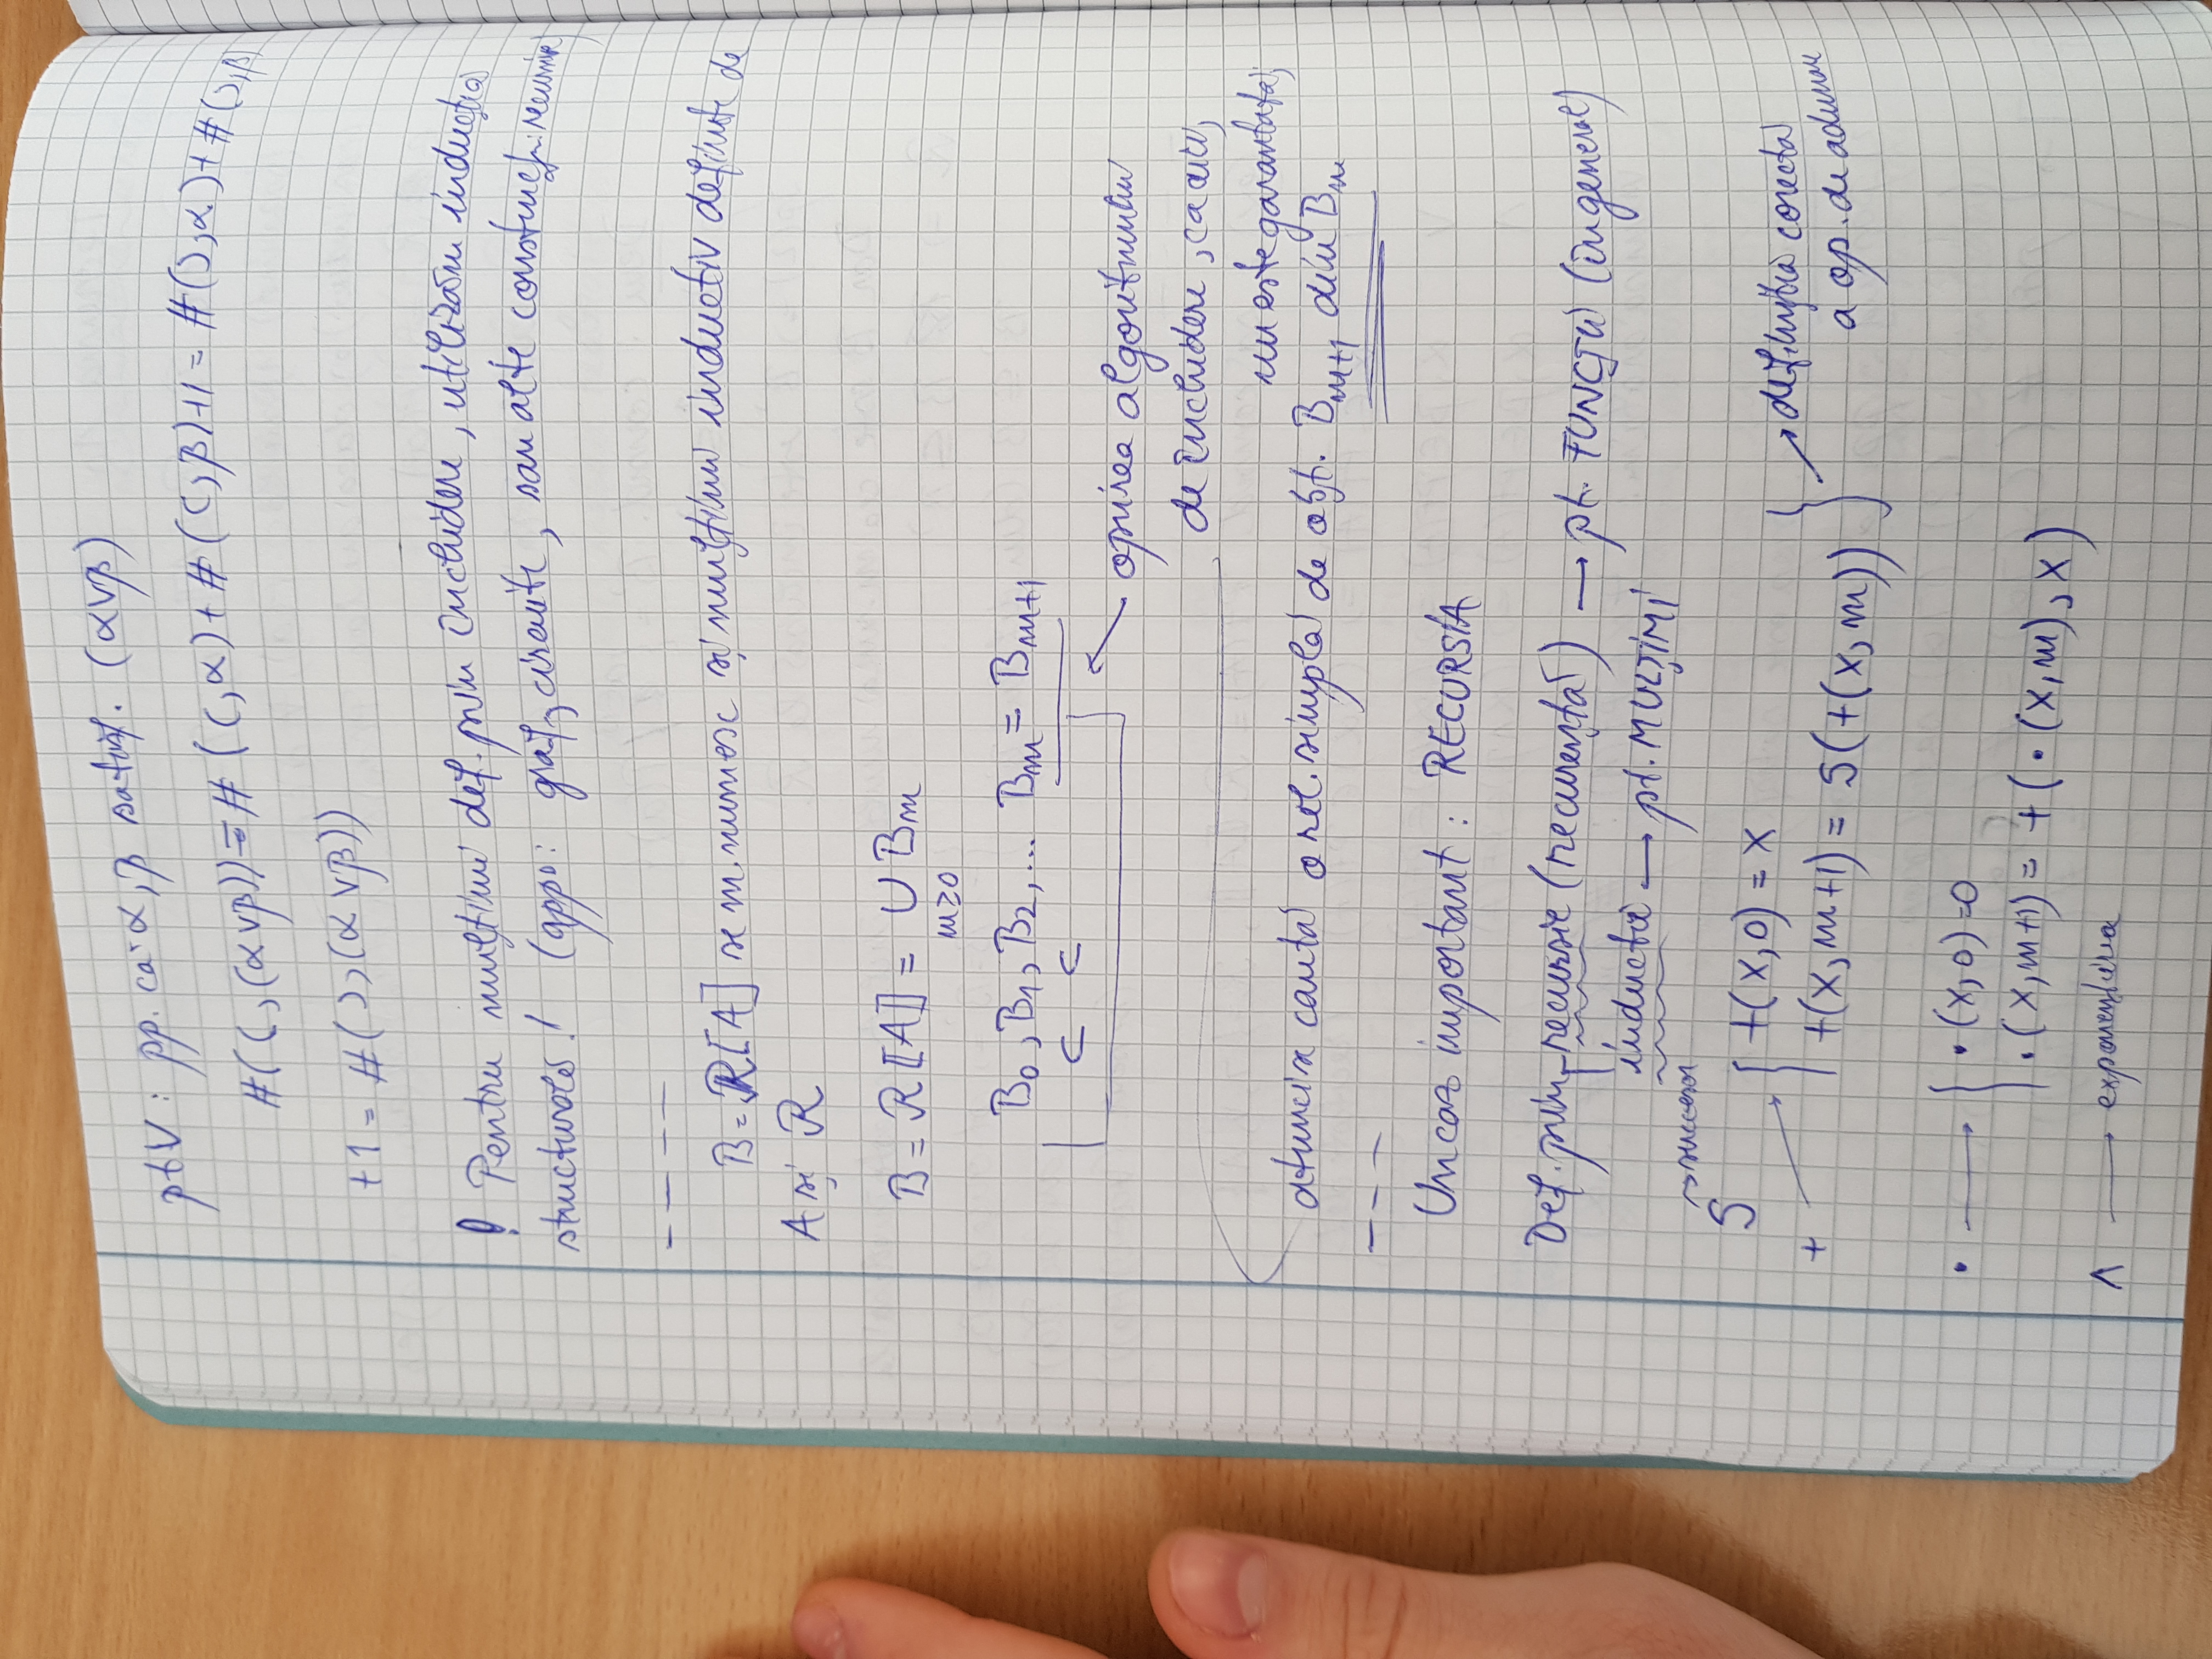 pt V : pp. că α, β satisf. (α∨β)
#( (, (α∨β)) = # ( (, α) + # ( (, β)+1 = # ( ), α) + # ( ), β)
+1 = # ( ), (α∨β))
! Pentru mulțimi def. prin includere, utilizăm inducția
structurală! (app: graf, circuite, sau alte construcții recursive)
– – – –
B = R[A] se m. numesc și mulțimi inductiv definite de
A și R
B = R[[A]] = ∪ Bm
m≥0
B0, B1, B2, ... Bm = Bm+1
⊂ ⊂
oprirea algoritmului
de includere, ca aici,
nu este garantată;
atunci se caută o rel. simplă de obț. Bm+1 din Bm
– – –
Un caz important : RECURSIA
Def. prin recursie (recurență) → pt. FUNCȚII (în general)
inducție → pt. MULȚIMI
→ succesor
S
+ → { +(x,0) = x
+(x,m+1) = S(+(x,m)) } → definiția corectă
a op. de adunare
• → { •(x,0)=0
•(x,m+1) = +(•(x,m), x)
∧ → exponențierea